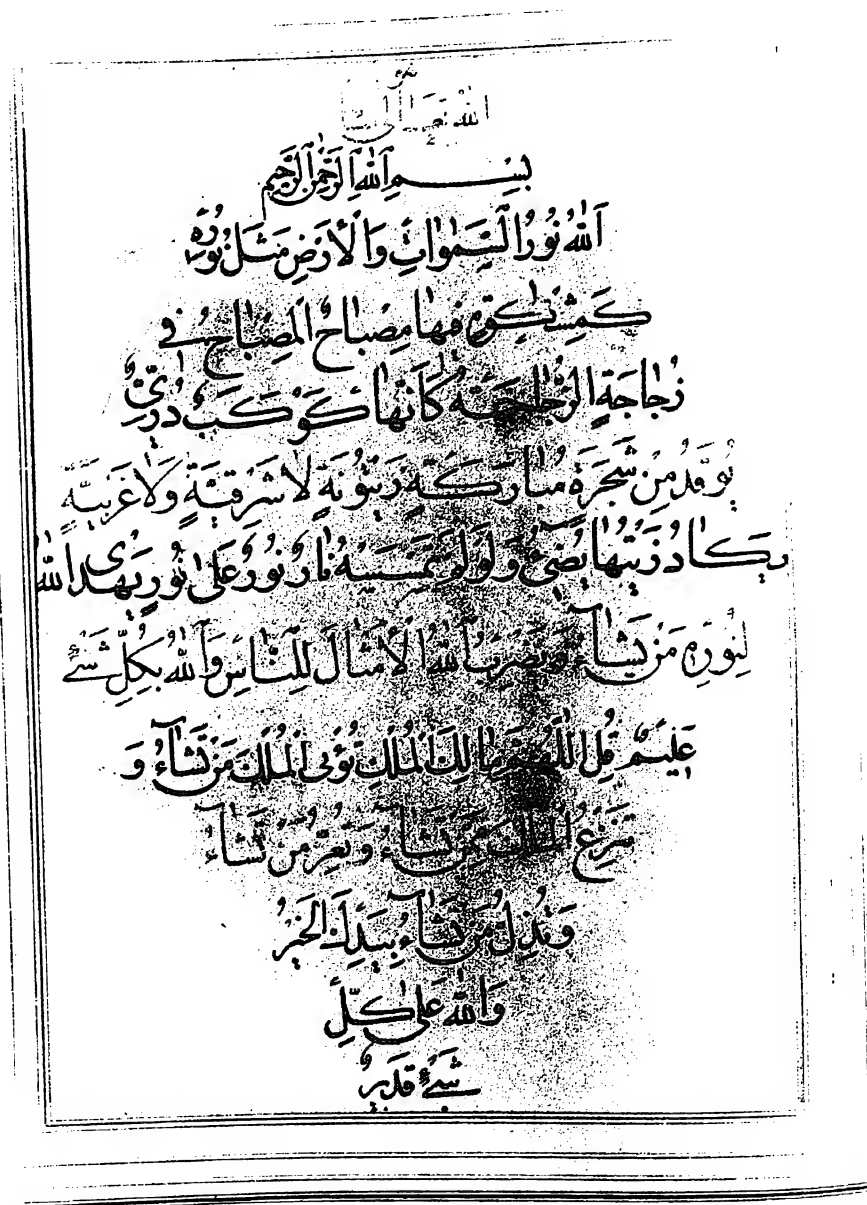 الله تعالى
بِسْمِ اللهِ الرَّحْمٰنِ الرَّحِيمِ
اَللهُ نُورُ السَّمٰوَاتِ وَالْاَرْضِ مَثَلُ نُورِهِ
كَمِشْكٰوةٍ فِيهَا مِصْبَاحٌ اَلْمِصْبَاحُ فِي
زُجَاجَةٍ اَلزُّجَاجَةُ كَاَنَّهَا كَوْكَبٌ دُرِّيٌّ
يُوقَدُ مِنْ شَجَرَةٍ مُبَارَكَةٍ زَيْتُونَةٍ لَا شَرْقِيَّةٍ وَلَا غَرْبِيَّةٍ
يَكَادُ زَيْتُهَا يُضِيءُ وَلَوْ لَمْ تَمْسَسْهُ نَارٌ نُورٌ عَلٰى نُورٍ يَهْدِى اللهُ
لِنُورِهِ مَنْ يَشَاءُ وَيَضْرِبُ اللهُ الْاَمْثَالَ لِلنَّاسِ وَاللهُ بِكُلِّ شَيْءٍ
عَلِيمٌ قُلِ اللّٰهُمَّ مَالِكَ الْمُلْكِ تُؤْتِى الْمُلْكَ مَنْ تَشَاءُ وَ
تَنْزِعُ الْمُلْكَ مِمَّنْ تَشَاءُ وَتُعِزُّ مَنْ تَشَاءُ
وَتُذِلُّ مَنْ تَشَاءُ بِيَدِكَ الْخَيْرُ
وَاللهُ عَلٰى كُلِّ
شَيْءٍ قَدِيرٌ